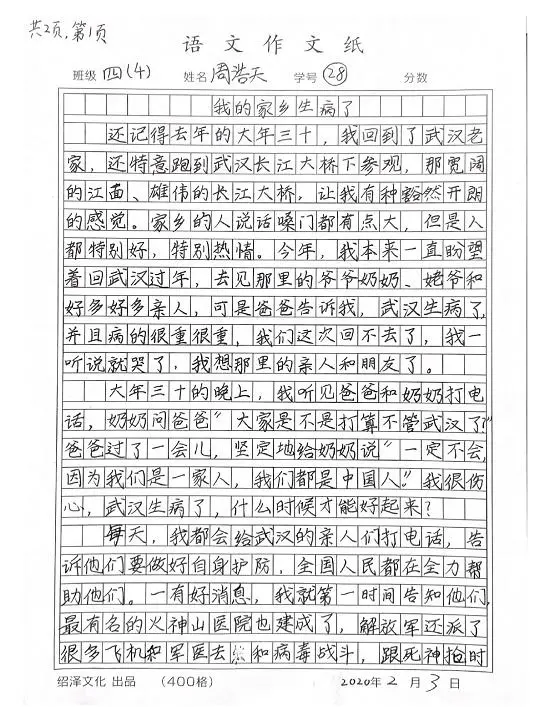 共2页,第1页
语文作文纸
班级 四(4) 姓名 周浩天 学号 28 分数
我的家乡生病了
还记得去年的大年三十，我回到了武汉老
家，还特意跑到武汉长江大桥下参观，那宽阔
的江面、雄伟的长江大桥，让我有种豁然开朗
的感觉。家乡的人说话嗓门都有点大，但是人
都特别好，特别热情。今年，我本来一直盼望
着回武汉过年，去见那里的爷爷奶奶、姥爷和
好多好多亲人，可是爸爸告诉我，武汉生病了，
并且病的很重很重，我们这次回不去了，我一
听说就哭了，我想那里的亲人和朋友了。
大年三十的晚上，我听见爸爸和奶奶打电
话，奶奶问爸爸“大家是不是打算不管武汉了？”
爸爸过了一会儿，坚定地给奶奶说“一定不会，
因为我们是一家人，我们都是中国人”。我很伤
心，武汉生病了，什么时候才能好起来？
每天，我都会给武汉的亲人们打电话，告
诉他们要做好自身护防，全国人民都在全力帮
助他们。一有好消息，我就第一时间告知他们，
最有名的火神山医院也建成了，解放军还派了
很多飞机和军医去和病毒战斗，跟死神抢时
绍泽文化 出品 （400格） 2020年2月3日